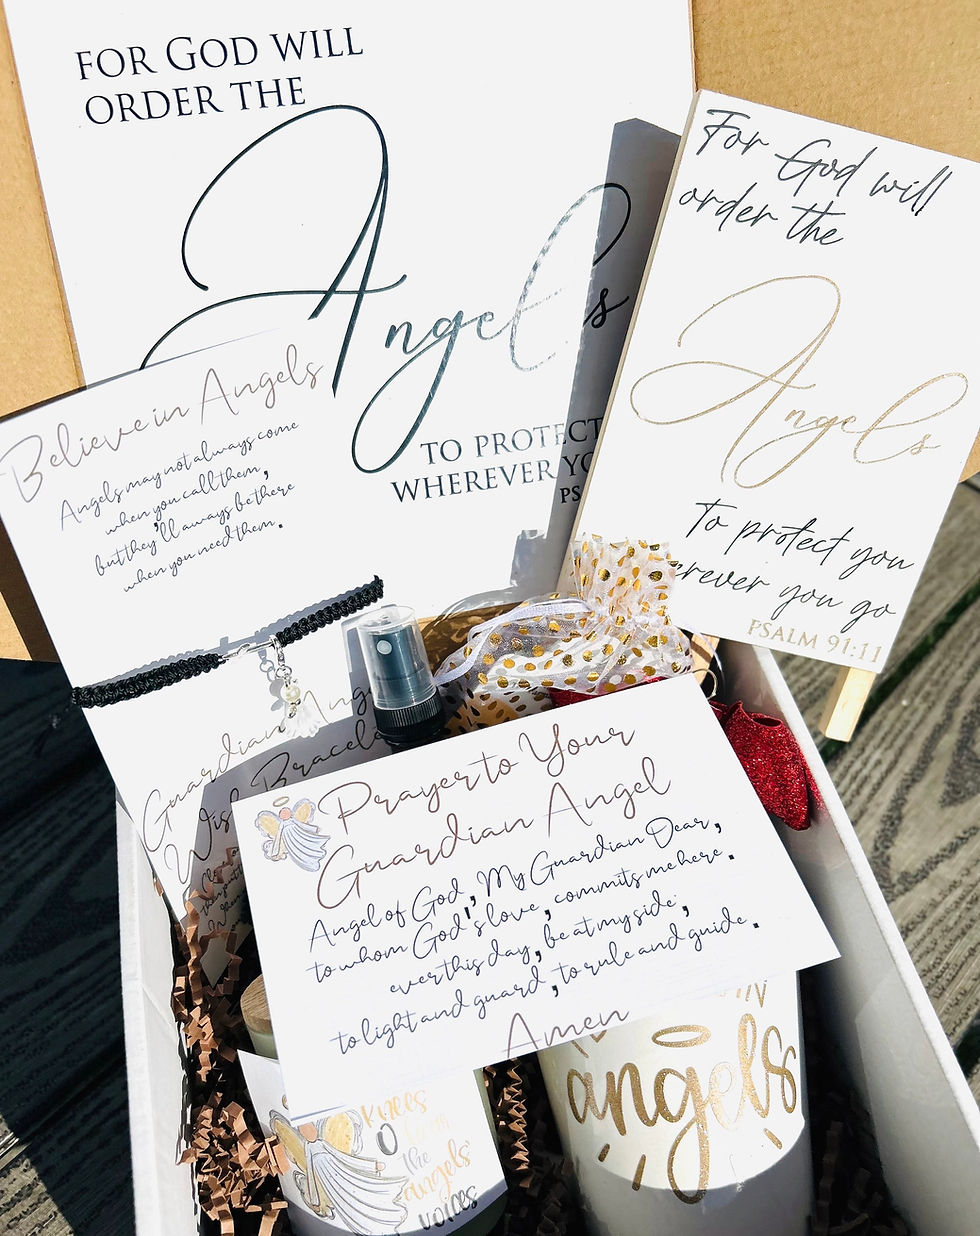 FOR GOD WILL
ORDER THE
Angels
TO PROTECT
WHEREVER
PS
For God will
order the
Angels
To protect you
erever you go
PSALM 91:11
Believe in Angels
Angels may not always come
when you call them,
but they'll always be there
when you need them.
Guardian Angel
Wish Bracelet
Prayer to Your
Guardian Angel
Angel of God, My Guardian Dear,
to whom God's love, commits me here.
ever this day, be at my side,
to light and guard, to rule and guide.
Amen
angels
knees
the
angels'
voices